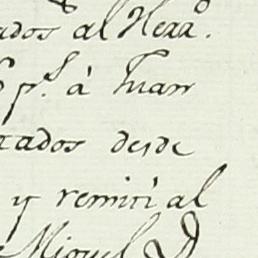 ados al Herr.º
p.s à Juan
tados desde
y remiti al
Miguel D